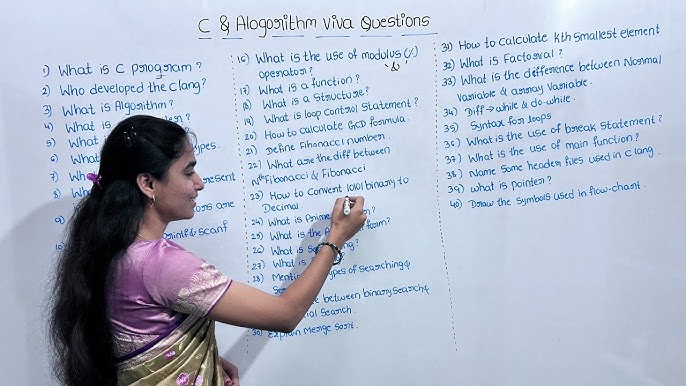 C & Alogorithm Viva Questions
1) What is C program?
2) Who developed the C lang?
3) What is Algorithm?
4) What is
5) What
6) What
7) Wha
8) W
resent
9)
ors are
10
printf & scanf
16) What is the use of modulus (%)
operator? '%'
17) What is a function?
18) What is a Structure?
19) What is loop control Statement?
20) How to calculate GCD formula.
21) Define Fibonacci number.
22) What are the diff between
Nth Fibonacci & Fibonacci
23) How to Convert 1001 binary to
Decimal
24) What is Prime
25) What is the form?
26) What is
27) What is
28) Menti types of searching &
between binary search &
ial search.
30) Explain Merge sort.
31) How to calculate kth smallest element
32) What is Factorial?
33) What is the difference between Normal
Variable & array Variable.
34) Diff → while & do-while.
35) Syntax for loops
36) What is the use of break Statement?
37) What is the use of main function?
38) Name some header files used in C lang.
39) What is pointer?
40) Draw the symbols used in flow-chart.